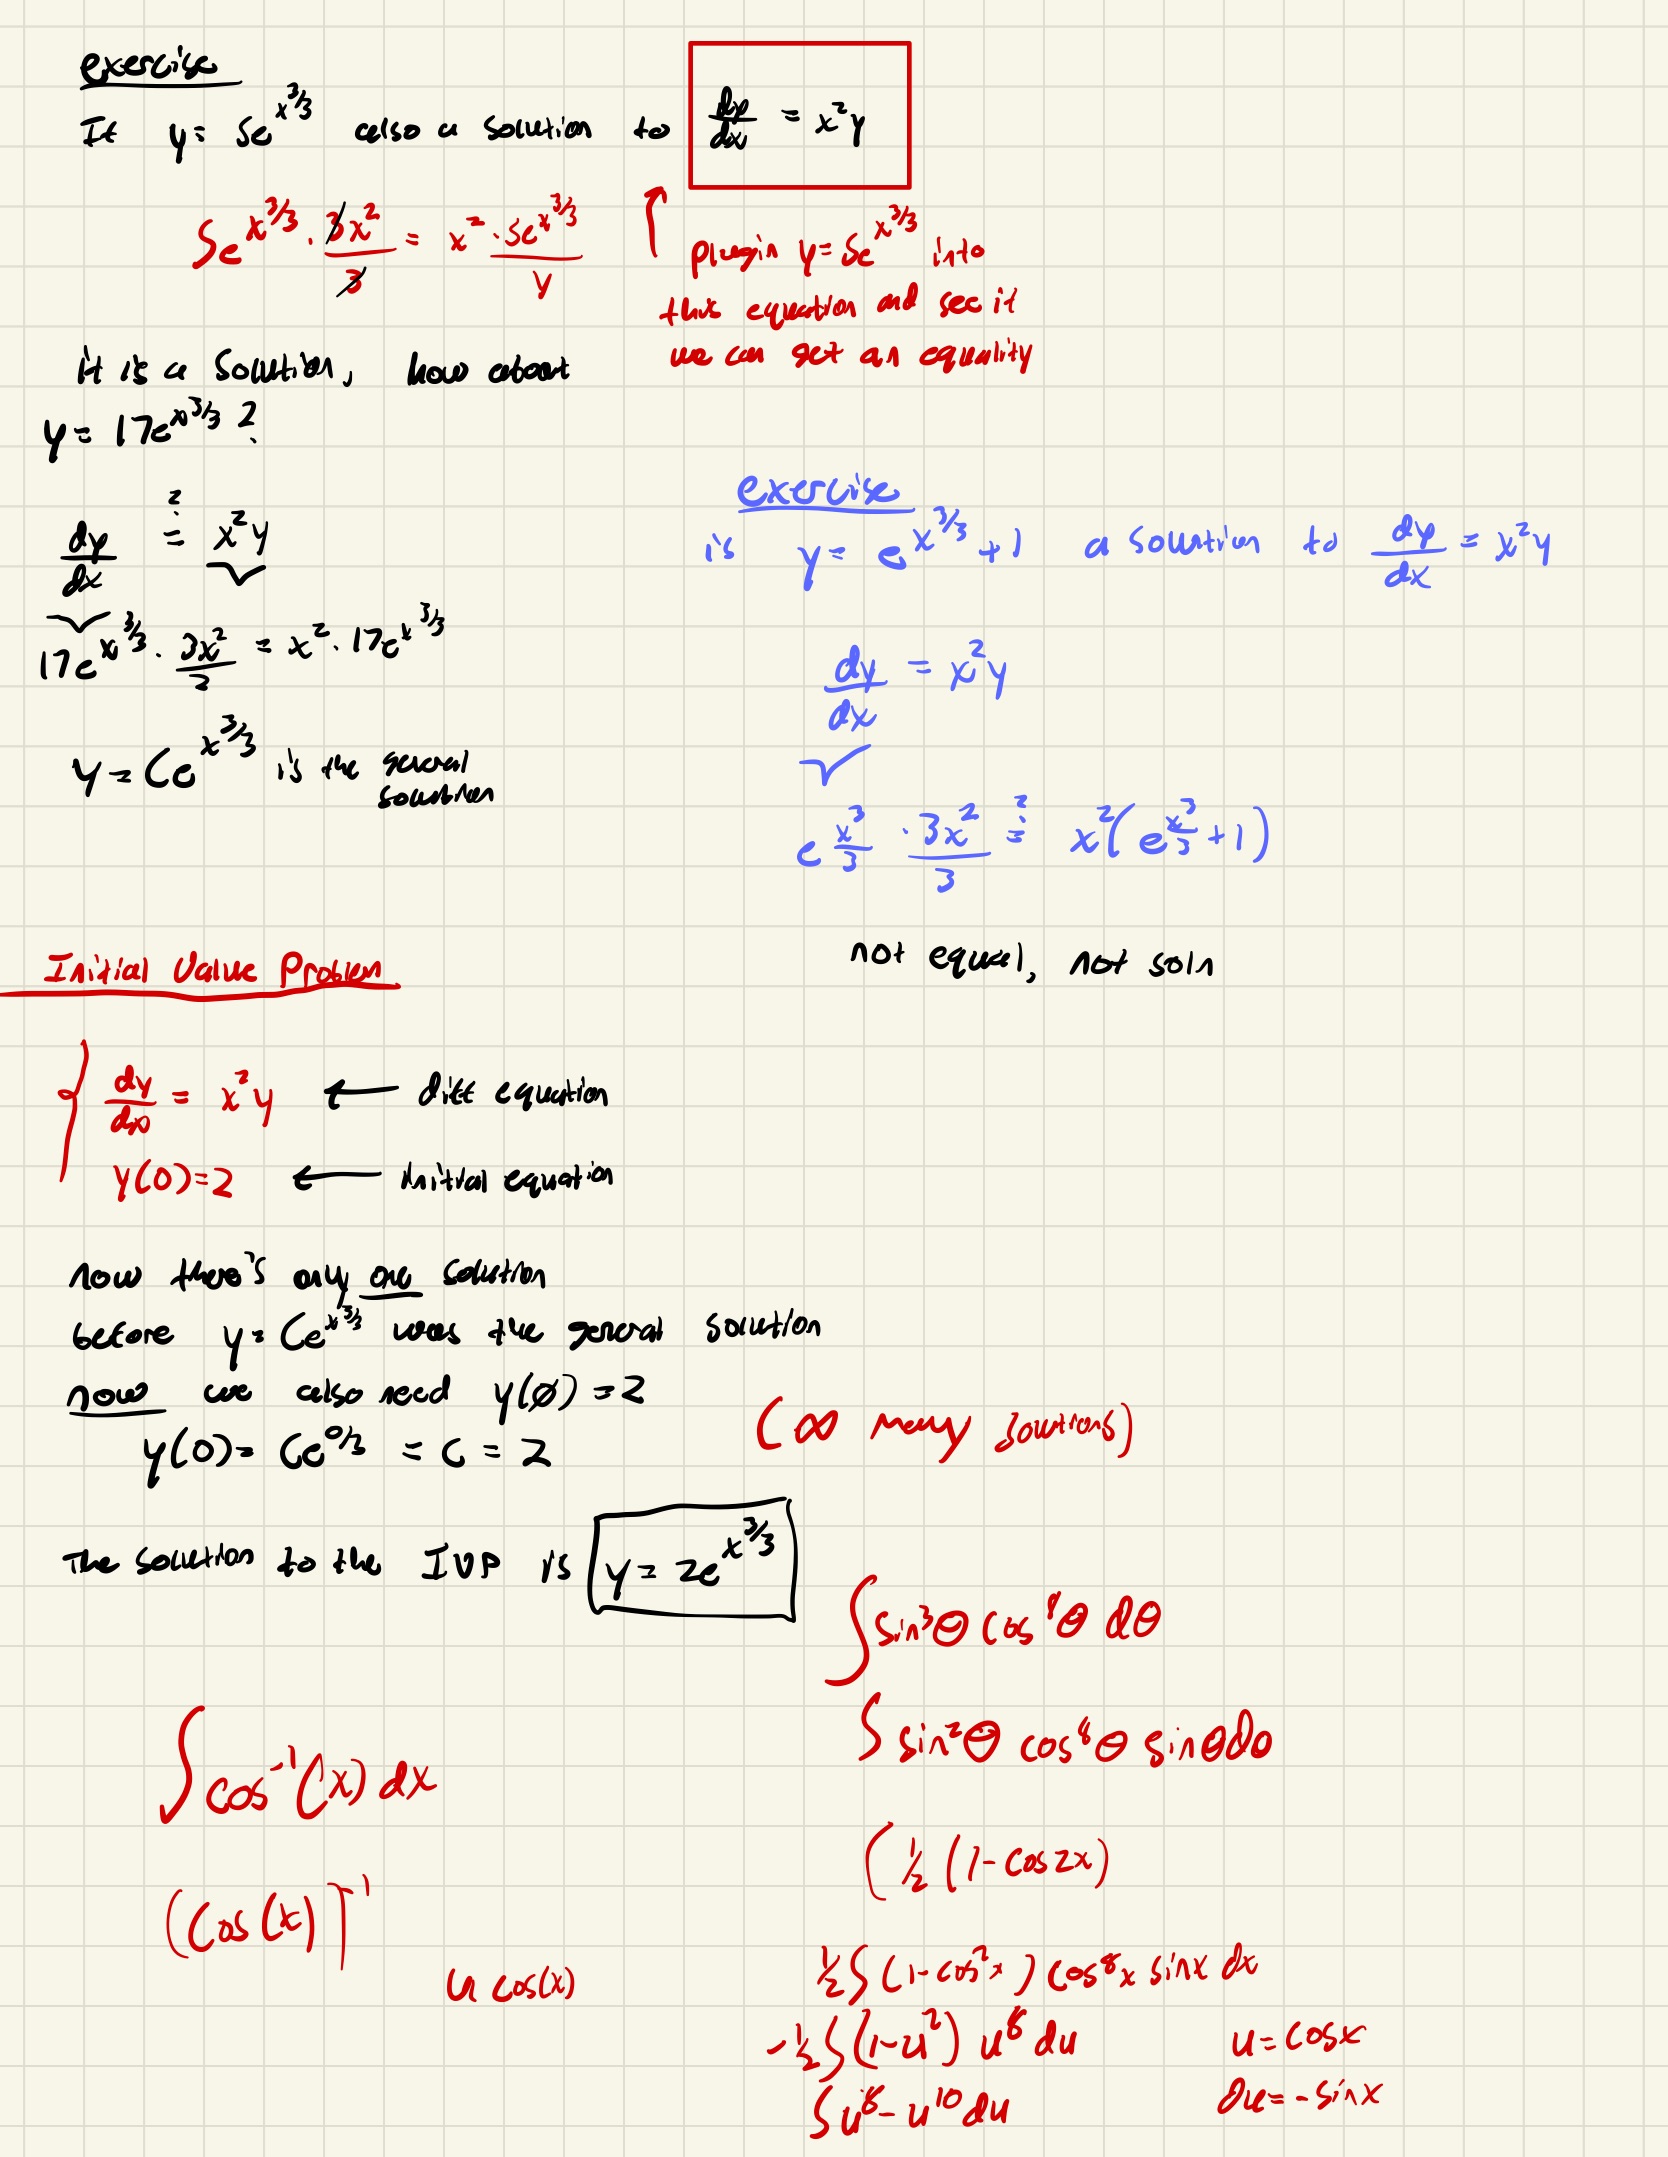 exercise
If y = 5e^{x^3/3} also a solution to dy/dx = x^2y
5e^{x^3/3} · 3x^2/3 = x^2 · 5e^{x^3/3}
y
plugin y = 5e^{x^3/3} into
this equation and see if
we can get an equality
it is a solution, how about
y = 17e^{x^3/3} ?
dy/dx ?= x^2y
17e^{x^3/3} · 3x^2/3 = x^2 · 17e^{x^3/3}
y = Ce^{x^3/3} is the general
solution
exercise
is y = e^{x^3/3} + 1 a solution to dy/dx = x^2y
dy/dx = x^2y
e^{x^3/3} · 3x^2/3 ?= x^2(e^{x^3/3} + 1)
not equal, not soln
Initial Value Problem
dy/dx = x^2y ← diff equation
y(0)=2 ← initial equation
now there's only one solution
before y = Ce^{x^3/3} was the general solution
now we also need y(0) = 2
(∞ many solutions)
y(0) = Ce^{0/3} = C = 2
The solution to the IVP is y = 2e^{x^3/3}
∫ cos^{-1}(x) dx
(cos(x))^{-1}
u cos(x)
∫ sin^3θ cos^8θ dθ
∫ sin^2θ cos^8θ sinθdθ
( 1/2 (1-cos2x)
1/2 ∫ (1-cos^2x) cos^8x sinx dx
-1/2 ∫ (1-u^2) u^8 du
u = cosx
∫ u^8 - u^10 du
du = -sinx